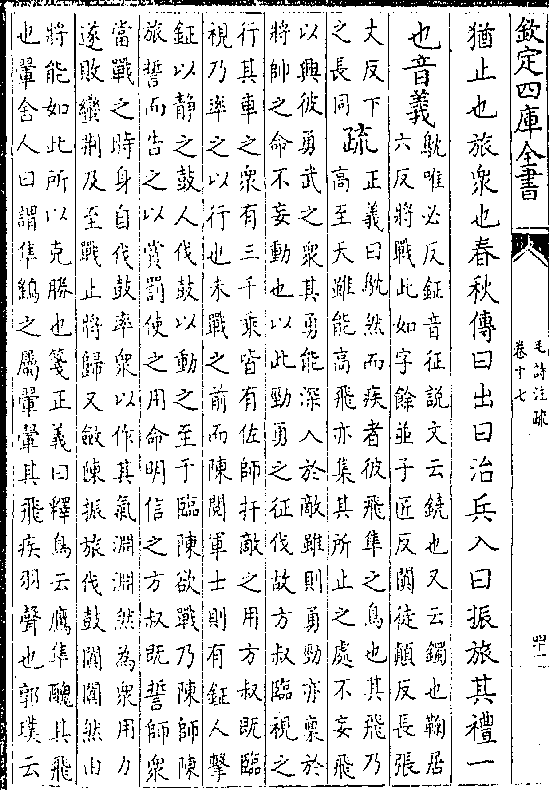 欽定四庫全書
毛詩注疏
卷十七
四十一
猶止也旅衆也春秋傳曰出曰治兵入曰振旅其禮一
也音義
鴥唯必反鉦音征説文云鐃也又云鐲也鞠居
六反將戰此如字餘並子匠反闐徒顛反長張
丈反下
之長同
疏
正義曰鴥然而疾者彼飛隼之鳥也其飛乃
高至天雖能高飛亦集其所止之處不妄飛
以興彼勇武之衆其勇能深入於敵雖則勇勁亦稟於
將帥之命不妄動也以此勁勇之征伐故方叔臨視之
行其車之衆有三千乘皆有佐師扞敵之用方叔既臨
視乃率之以行也未戰之前而陳閱軍士則有鉦人擊
鉦以静之鼓人伐鼓以動之至于臨陳欲戰乃陳師陳
旅誓而告之以賞罰使之用命明信之方叔既誓師衆
當戰之時身自伐鼓率衆以作其氣淵淵然為衆用力
遂敗蠻荆及至戰止將歸又斂陳振旅伐鼓闐闐然由
將能如此所以克勝也箋正義曰釋鳥云鷹隼醜其飛
也翬舍人曰謂隼鷂之屬翬翬其飛疾羽聲也郭璞云